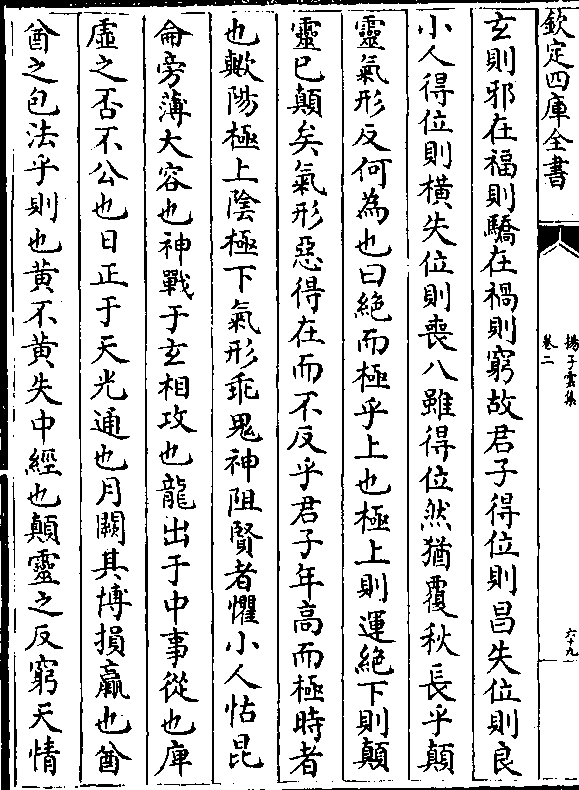 欽定四庫全書
揚子雲集
卷二
六十九
玄則邪在福則驕在禍則窮故君子得位則昌失位則良
小人得位則橫失位則喪八雖得位然猶覆秋長乎顛
靈氣形反何為也曰絶而極乎上也極上則運絶下則顛
靈已顛矣氣形惡得在而不反乎君子年高而極時者
也歟陽極上陰極下氣形乖鬼神阻賢者懼小人怙昆
侖旁薄大容也神戰于玄相攻也龍出于中事從也庫
虛之否不公也日正于天光通也月闕其博損羸也酋
酋之包法乎則也黄不黄失中經也顛靈之反窮天情